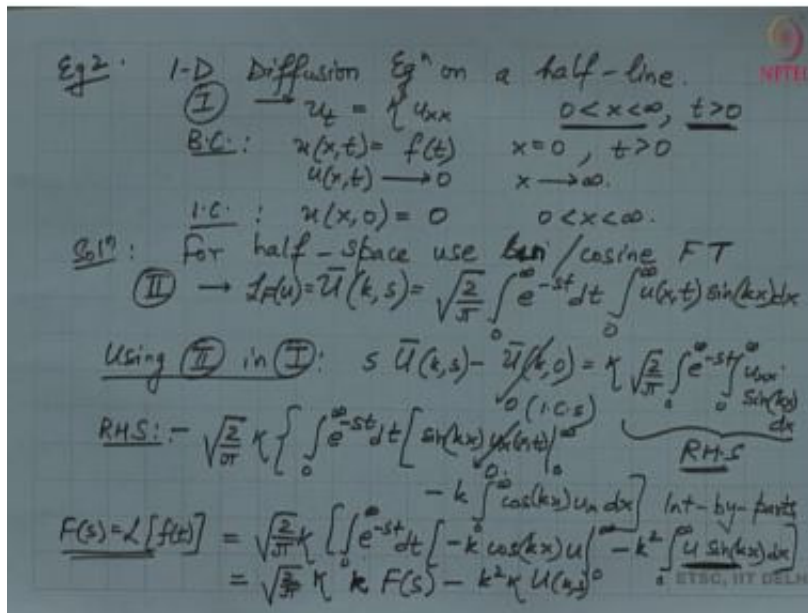 Eg 2. 1-D Diffusion Eqⁿ on a half-line.
NPTEL
Ⓘ → u_t = κ u_xx 0 < x < ∞, t > 0
B.C.: u(x,t) = f(t) x = 0, t > 0
u(x,t) → 0 x → ∞.
I.C.: u(x,0) = 0 0 < x < ∞.
Solⁿ: For half-space use /cosine FT
Ⓘⓘ → ℒ_F(u) = Ū(k,s) = √(2/π) ∫₀^∞ e^{-st} dt ∫₀^∞ u(x,t) sin(kx) dx
Using Ⓘⓘ in Ⓘ: s Ū(k,s) - Ū(k,0) = κ √(2/π) ∫₀^∞ e^{-st} ∫₀^∞ u_xx sin(kx) dx
0 (I.C.s)
RHS
RHS: - √(2/π) κ { ∫₀^∞ e^{-st} dt [ sin(kx) u_x(x,t) |₀^∞
0
- k ∫₀^∞ cos(kx) u_x dx ] Int-by-parts
F(s) = ℒ[f(t)] = √(2/π) κ [ ∫₀^∞ e^{-st} dt [ -k cos(kx) u |₀^∞ - k² ∫₀^∞ u sin(kx) dx ]
= √(2/π) κ k F(s) - k² κ U(k,s)
ETSC, IIT DELHI